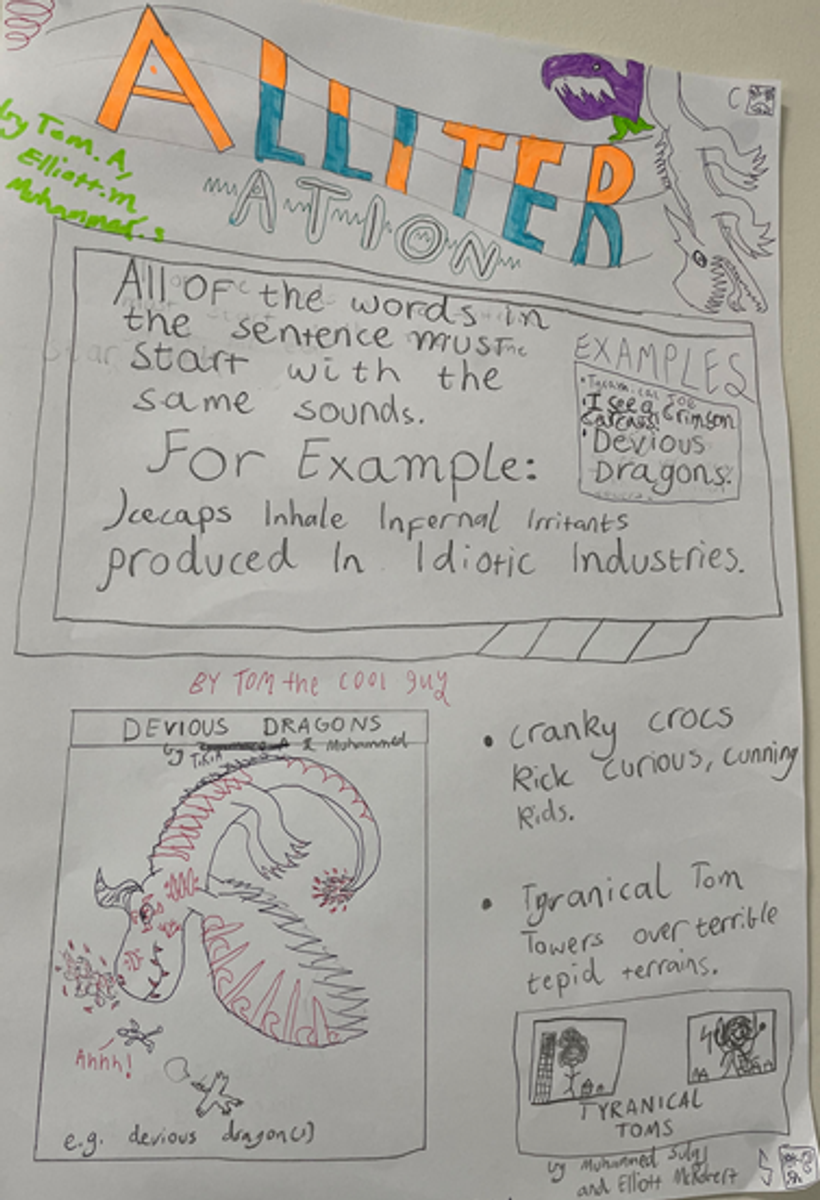 ALLITER
ATION
by Tom.A,
Elliott.m
Muhammad.s
All OF the words in
the sentence must
start with the
same sounds.
For Example:
Icecaps Inhale Infernal Irritants
produced In Idiotic Industries.
EXAMPLES
I see a Crimson
Carcass!
Devious
Dragons.
BY TOM the COOl guy
DEVIOUS DRAGONS
by & Muhammed
Ahhh!
e.g. devious dragon(s)
• Cranky crocs
kick curious, cunning
kids.
• Tyranical Tom
Towers over terrible
tepid terrains.
TYRANICAL
TOMS
by Muhammed
and Elliott